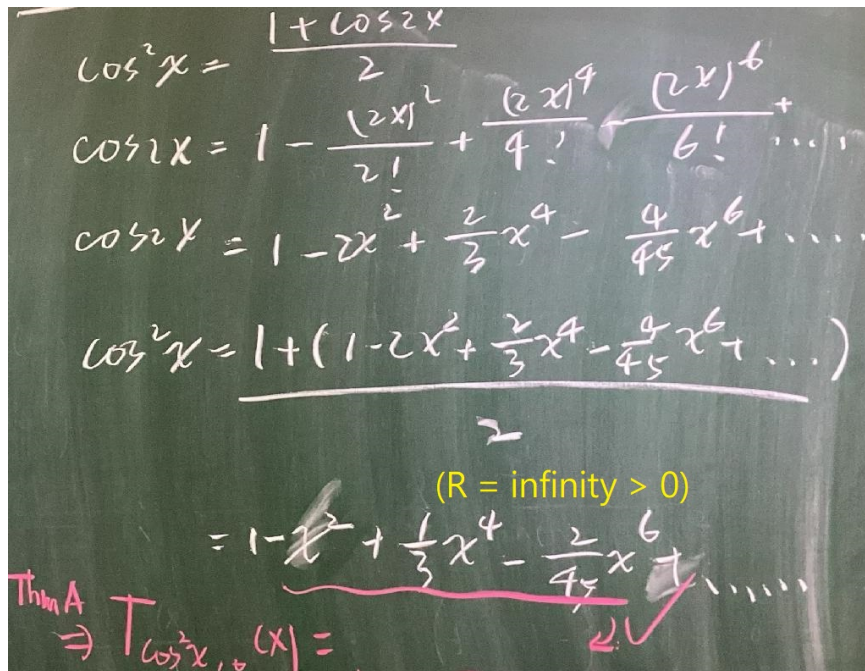 cos²x = (1 + cos2x)/2
cos2x = 1 - (2x)²/2! + (2x)⁴/4! - (2x)⁶/6! + ....
cos2x = 1 - 2x² + 2/3 x⁴ - 4/45 x⁶ + ....
cos²x = (1 + (1 - 2x² + 2/3 x⁴ - 4/45 x⁶ + ...))/2
(R = infinity > 0)
= 1 - x² + 1/3 x⁴ - 2/45 x⁶ + ......
Thm A
⇒ T cos²x, (x) =